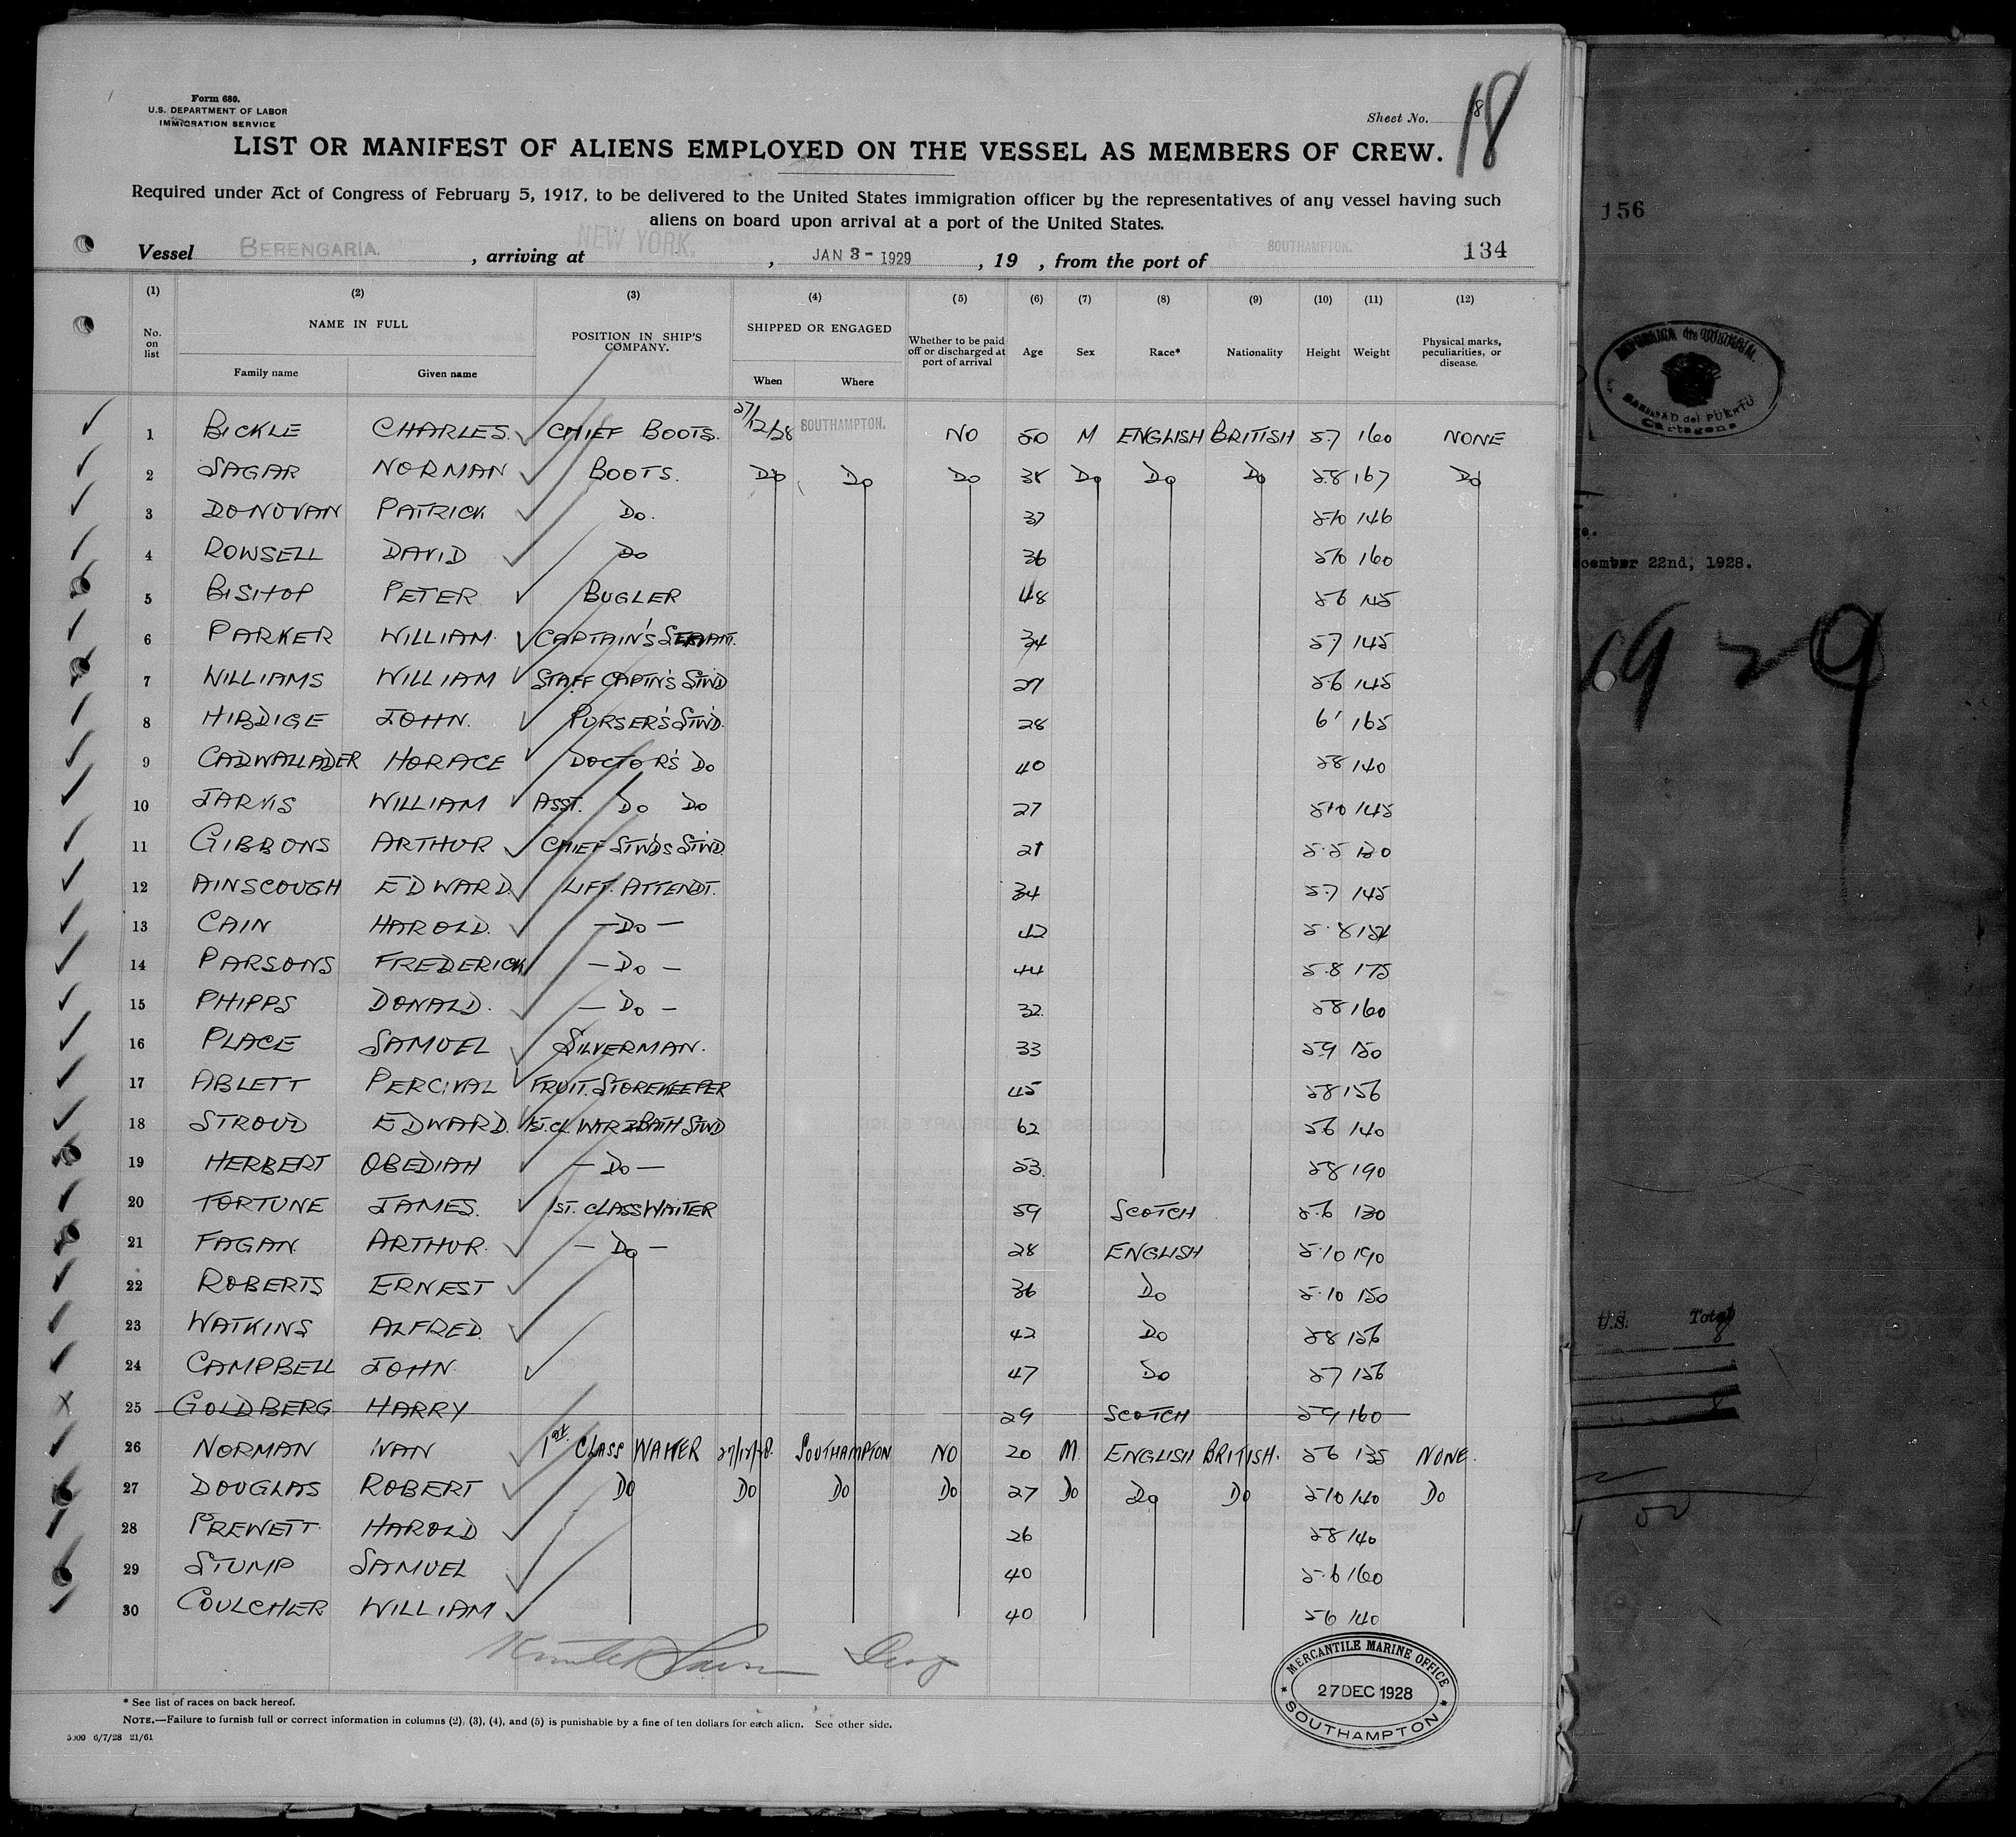 Form 680.
U.S. DEPARTMENT OF LABOR
IMMIGRATION SERVICE
Sheet No. 8
18
LIST OR MANIFEST OF ALIENS EMPLOYED ON THE VESSEL AS MEMBERS OF CREW.
Required under Act of Congress of February 5, 1917, to be delivered to the United States immigration officer by the representatives of any vessel having such
aliens on board upon arrival at a port of the United States.
Vessel BERENGARIA. , arriving at NEW YORK. , JAN 3 - 1929 , 19 , from the port of SOUTHAMPTON. 134
(1) (2) (3) (4) (5) (6) (7) (8) (9) (10) (11) (12)
No. on list NAME IN FULL POSITION IN SHIP'S COMPANY. SHIPPED OR ENGAGED Whether to be paid off or discharged at port of arrival Age Sex Race* Nationality Height Weight Physical marks, peculiarities, or disease.
Family name Given name When Where
1 BICKLE CHARLES. CHIEF BOOTS. 27/12/28 SOUTHAMPTON. NO 50 M ENGLISH BRITISH 5.7 160 NONE
2 SAGAR NORMAN BOOTS. Do Do Do 38 Do Do Do 5.8 167 Do
3 DONOVAN PATRICK Do. 37 5.10 146
4 ROWSELL DAVID Do 36 5.10 160
5 BISHOP PETER BUGLER 48 5.6 145
6 PARKER WILLIAM. CAPTAIN'S SERVANT. 34 5.7 145
7 WILLIAMS WILLIAM STAFF CAPTN'S STWD 27 5.6 145
8 HIBDIGE JOHN. PURSER'S STWD. 28 6' 165
9 CADWALLADER HORACE DOCTOR'S Do 40 5.8 140
10 JARVIS WILLIAM ASST. Do Do 27 5.10 145
11 GIBBONS ARTHUR CHIEF STWDS STWD. 21 5.5 130
12 AINSCOUGH EDWARD. LIFT. ATTENDT. 34 5.7 145
13 CAIN HAROLD. — Do — 42 5.8 154
14 PARSONS FREDERICK — Do — 44 5.8 175
15 PHIPPS DONALD. — Do — 32. 5.8 160
16 PLACE SAMUEL SILVERMAN. 33 5.9 150
17 ABLETT PERCIVAL FRUIT. STOREKEEPER 45 5.8 156
18 STROUD EDWARD. 1ST. CL. WTR & BATH STWD 62 5.6 140
19 HERBERT OBEDIAH — Do — 53. 5.8 190
20 FORTUNE JAMES. 1ST. CLASS WAITER 59 SCOTCH 5.6 130
21 FAGAN. ARTHUR. — Do — 28 ENGLISH 5.10 190
22 ROBERTS ERNEST 36 Do 5.10 150
23 WATKINS ALFRED. 42 Do 5.8 156
24 CAMPBELL JOHN. 47 Do 5.7 156
25 GOLDBERG HARRY 29 SCOTCH 5.9 160
26 NORMAN IVAN 1st CLASS WAITER 27/12/28. SOUTHAMPTON NO 20 M. ENGLISH BRITISH. 5.6 135 NONE.
27 DOUGLAS ROBERT Do Do Do Do 27 Do Do Do 5.10 140 Do
28 PREWETT. HAROLD 26 5.8 140
29 STUMP SAMUEL 40 5.6 160
30 COULCHER WILLIAM 40 5.6 140
MERCANTILE MARINE OFFICE
27 DEC 1928
SOUTHAMPTON
* See list of races on back hereof.
NOTE.—Failure to furnish full or correct information in columns (2), (3), (4), and (5) is punishable by a fine of ten dollars for each alien. See other side.
5000 6/7/28 21/61
156
SANIDAD del PUERTO
Cartagena
cember 22nd, 1928.
1929
U.S. Total
8